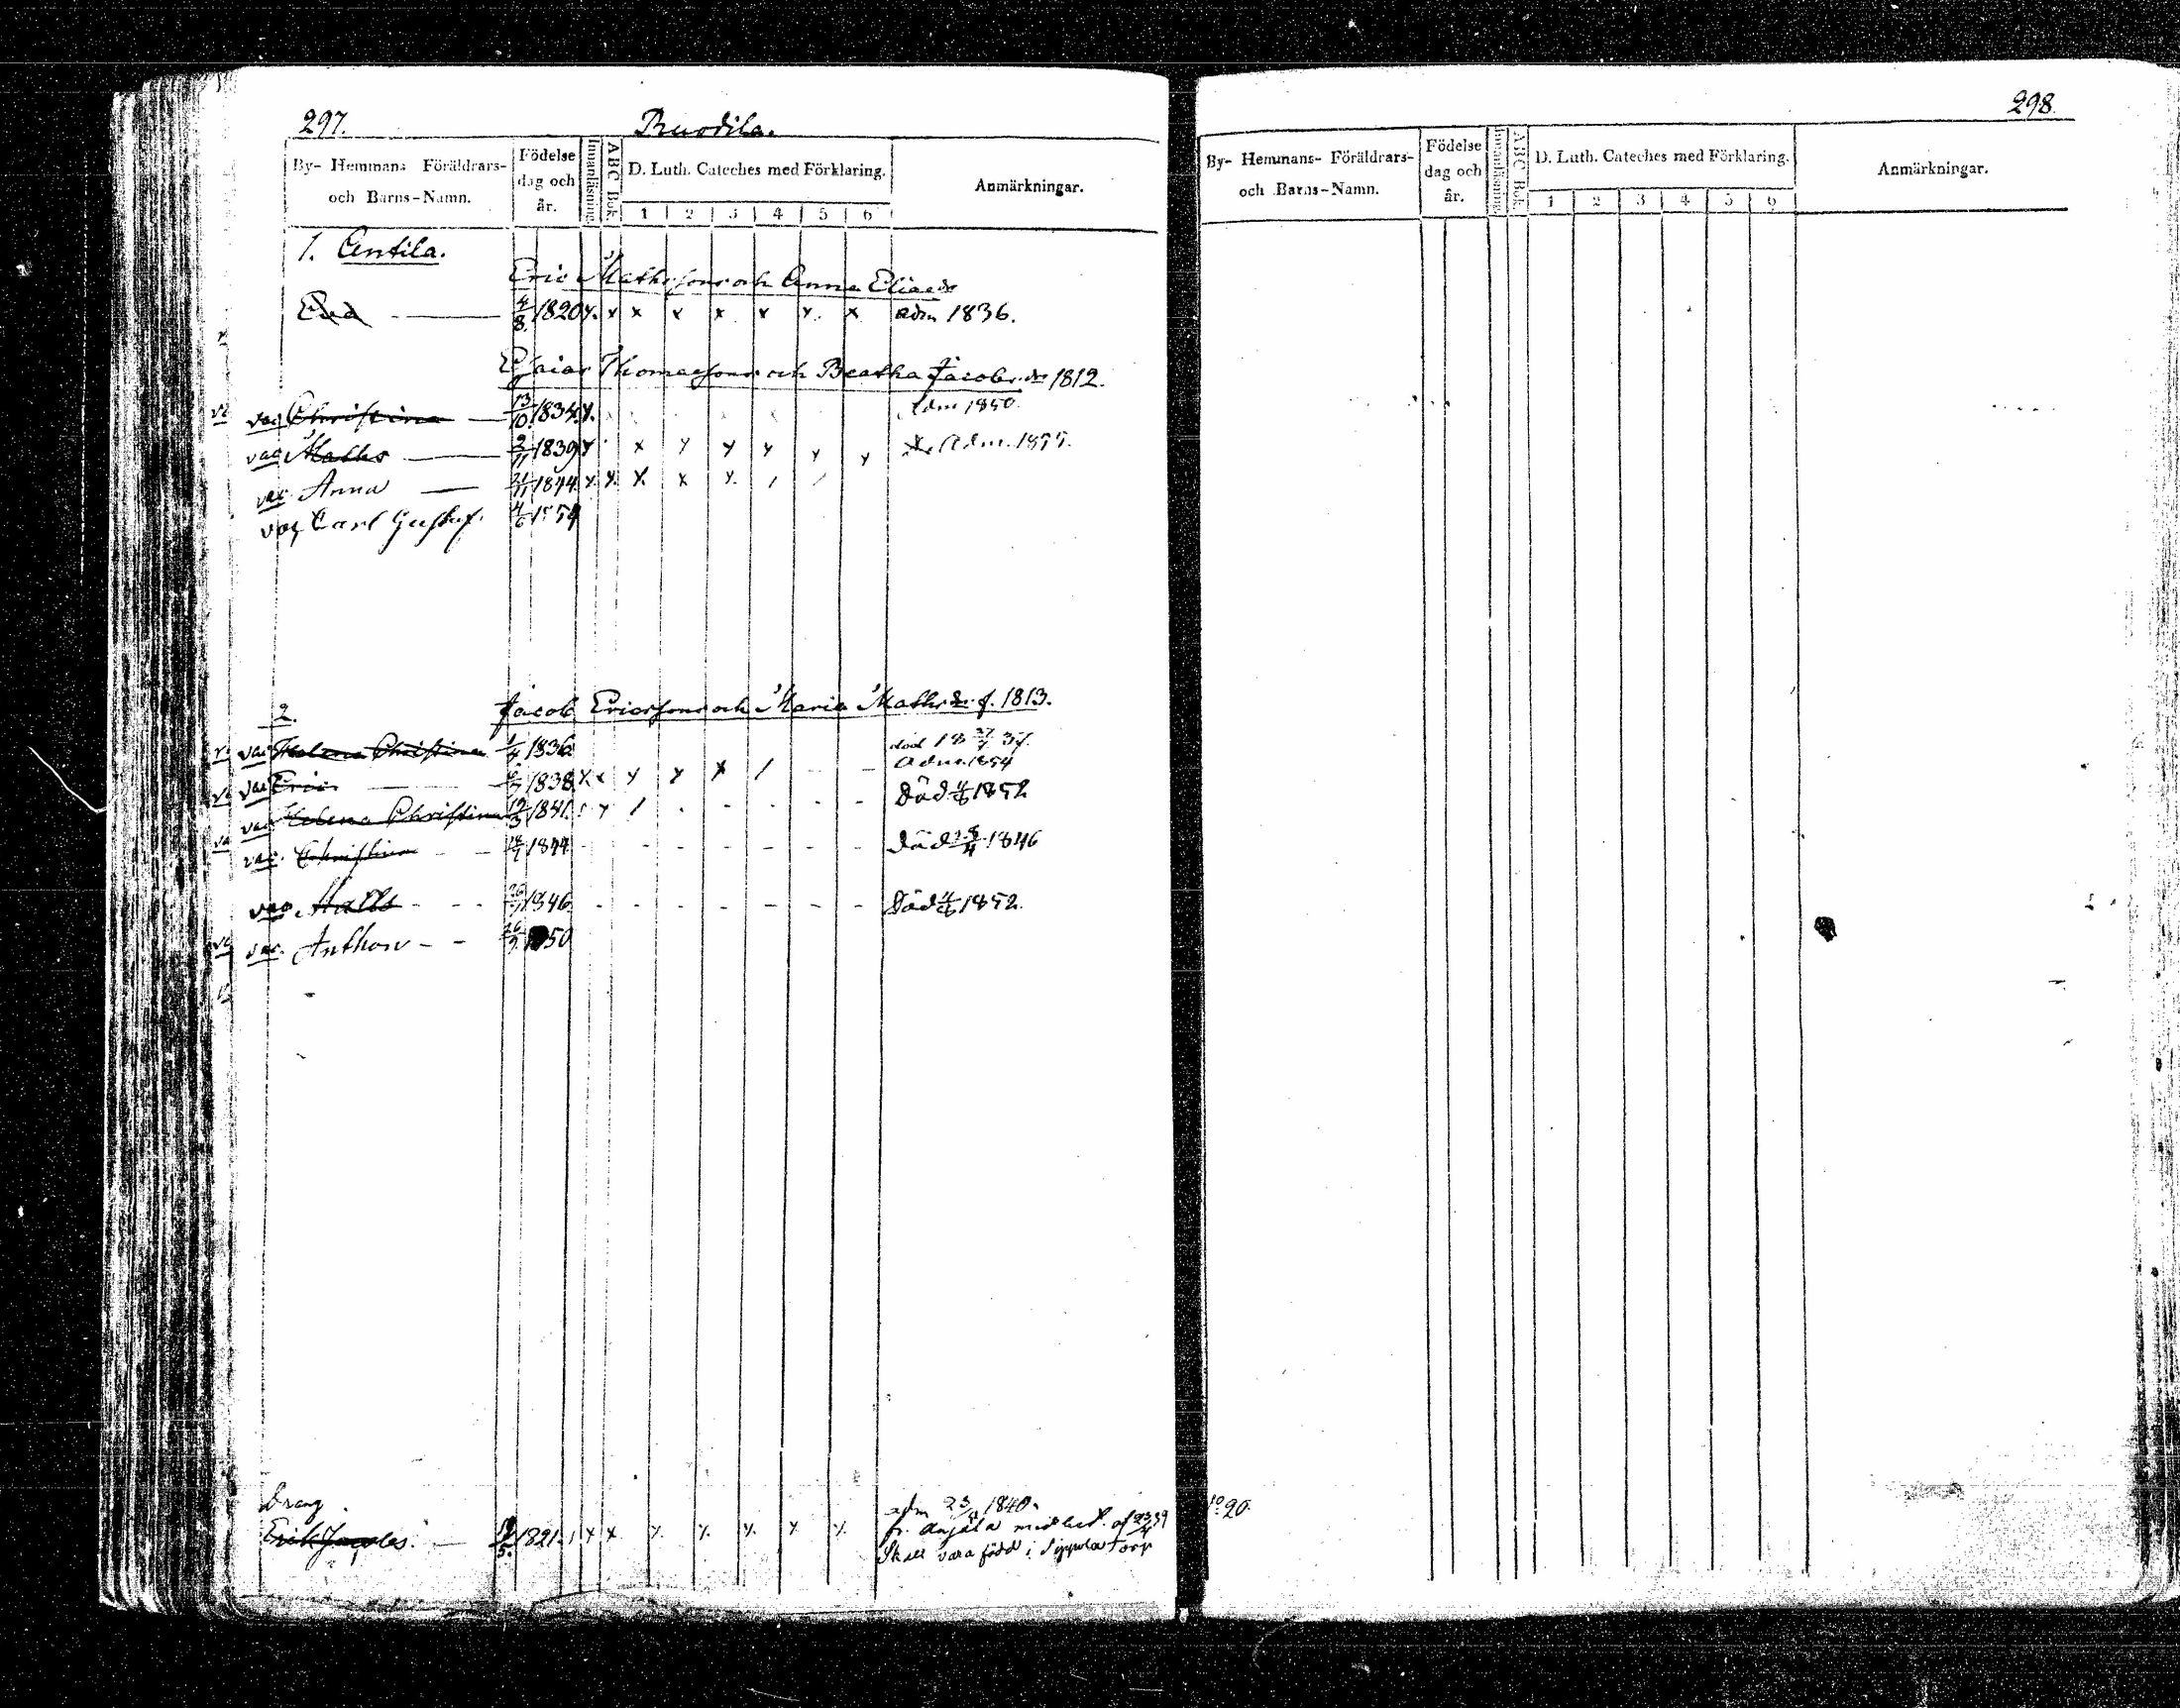 297. Ruodila.
By- Hemmans Föräldrars- och Barns-Namn. Födelse dag och år. Innanläsning. ABC Bok. D. Luth. Cateches med Förklaring. Anmärkningar.
1 2 3 4 5 6
1. Antila.
Eric Mathsson och Anna Eliaedr
Eva 4/8 1820 x. x x x x x x. x adm 1836.
Esaias Thomasson och Beatha Jacobsdr 1812.
vac Christina 13/10 1834 x. Adm 1850.
vac Maths 2/11 1839 x x y y y y y Adm. 1855.
vac Anna 1844 x x. x. x x. / /
vac Carl Gustaf. 4/6 1854
2. Jacob Ericsson och Maria Mathsdr f. 1813.
vac Helena Christina 1/4 1836 död 18 37.
vac Eric 1838 x x y y x / - - Adm. 1854
vac Helena Christina 19/3 1841. y / . - - - - Död 4/6 1852
vac. Christina 1844 - - - - - - Död 28/4 1846
vac. Maths - - 26/7 1846 - - - - - - - Död 4/6 1852.
vac. Anthon - - 1850
Dräng
Erik Jacobs. 19/5. 1821. x x y. y. y. y. y.
adm 23/ 1840.
fr. Anjala med bet. af 23/4 39
Skall vara född i Sippola torp
298.
By- Hemmans- Föräldrars- och Barns-Namn. Födelse dag och år. Innanläsning. ABC Bok. D. Luth. Cateches med Förklaring. Anmärkningar.
1 2 3 4 5 6
10 20.